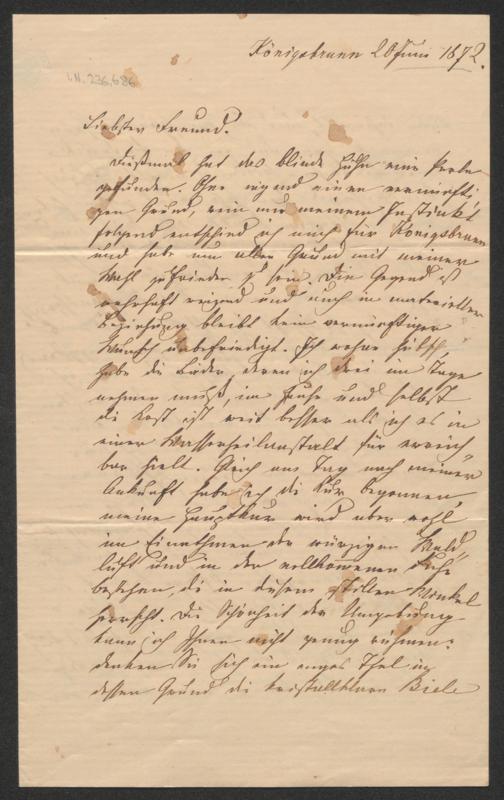 Königsbrunn 20 Juni 1872.
I.N. 236.686
Liebster Freund.
Dießmal hat das blinde Huhn eine Perle
gefunden. Ohne irgend einen vernünfti
gen Grund, rein nur meinem Instinkt
folgend entschied ich mich für Königsbrunn
und habe nun allen Grund mit meiner
Wahl zufrieden zu sein. Die Gegend ist
wahrhaft reizend und auch in materieller
Beziehung bleibt kein vernünftiger
Wunsch unbefriedigt. Ich wohne hübsch,
habe die Bäder, deren ich drei im Tage
nehmen muß, im Hause und selbst
die Kost ist weit besser als ich es in
einer Wasserheilanstalt für erreich
bar hielt. Gleich am Tag nach meiner
Ankunft habe ich die Kur begonnen,
meine Hauptkur wird aber wohl
im Einathmen der würzigen Wald
luft und in der vollkommenen Ruhe
bestehen, die in diesem stillen Winkel
herrscht. Die Schönheit der Umgebung
kann ich Ihnen nicht genug rühmen:
denken Sie sich ein enges Thal in
dessen Grund die kristallklare Biele